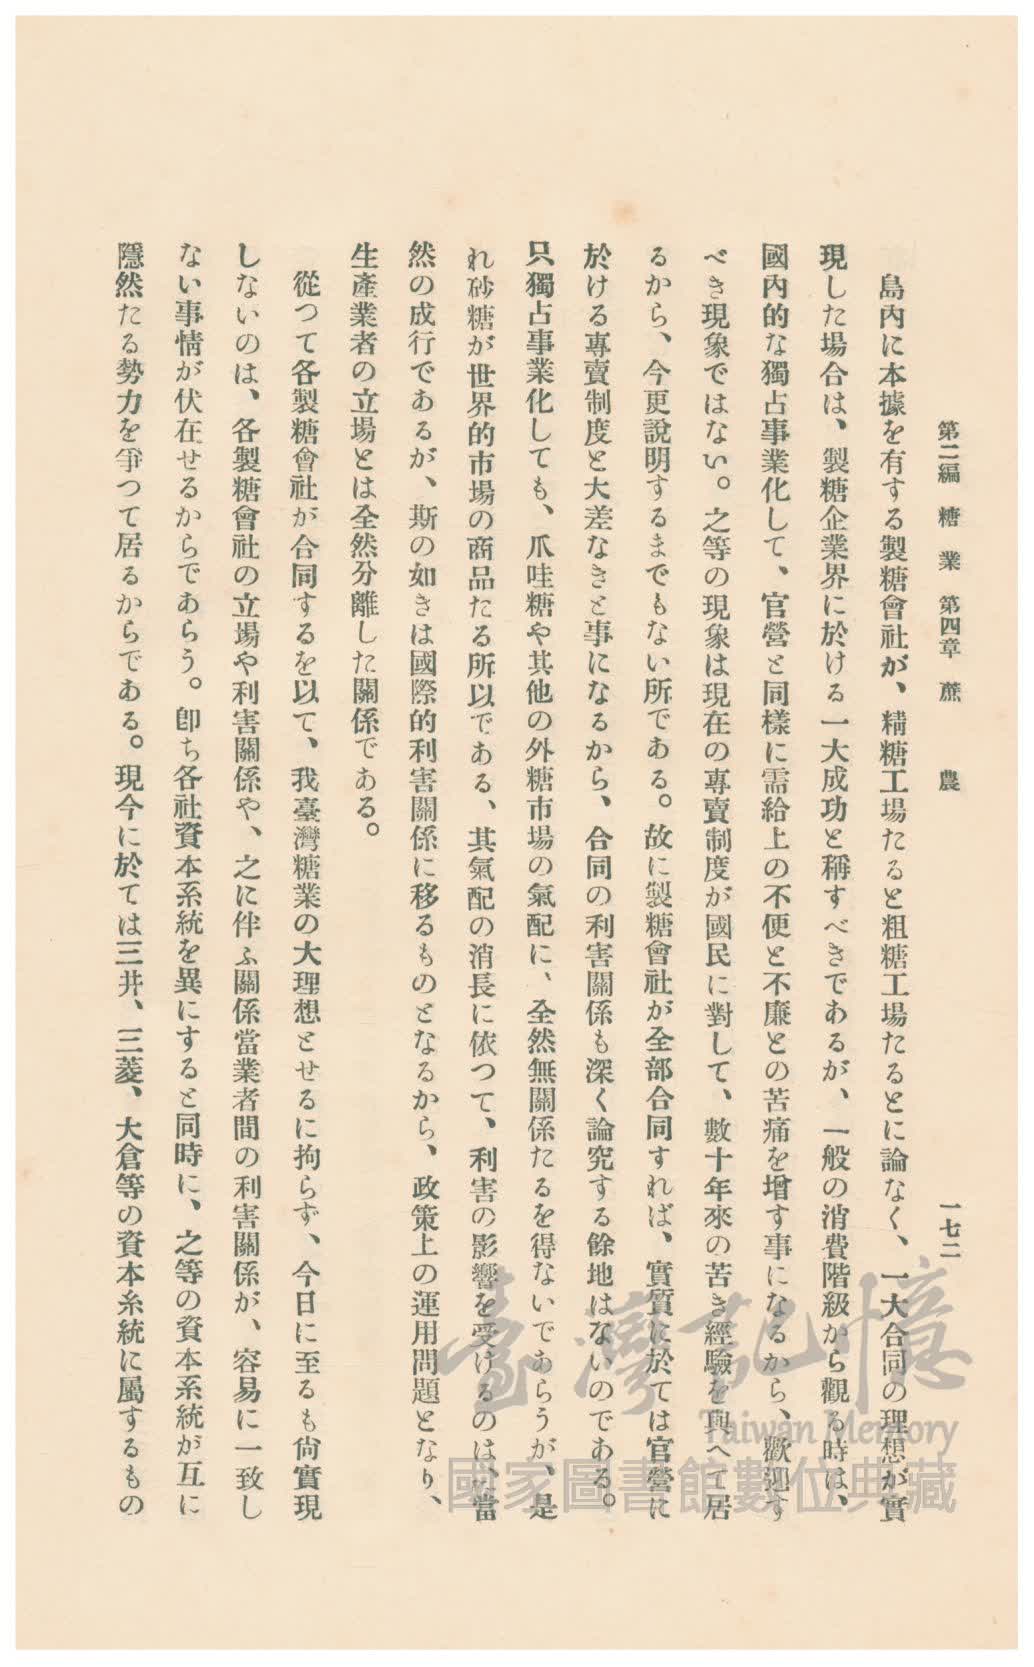 第二編 糖業 第四章 蔗農 一七二
島內に本據を有する製糖會社が、精糖工場たると粗糖工場たるとに論なく、一大合同の理想が實
現した場合は、製糖企業界に於ける一大成功と稱すべきであるが、一般の消費階級から觀る時は、
國內的な獨占事業化して、官營と同樣に需給上の不便と不廉との苦痛を增す事になるから、歡迎す
べき現象ではない。之等の現象は現在の專賣制度が國民に對して、數十年來の苦き經驗を與へて居
るから、今更說明するまでもない所である。故に製糖會社が全部合同すれば、實質に於ては官營に
於ける專賣制度と大差なきと事になるから、合同の利害關係も深く論究する餘地はないのである。
只獨占事業化しても、爪哇糖や其他の外糖市場の氣配に、全然無關係たるを得ないであらうが、是
れ砂糖が世界的市場の商品たる所以である、其氣配の消長に依つて、利害の影響を受けるのは、當
然の成行であるが、斯の如きは國際的利害關係に移るものとなるから、政策上の運用問題となり、
生產業者の立場とは全然分離した關係である。
從つて各製糖會社が合同するを以て、我臺灣糖業の大理想とせるに拘らず、今日に至るも尙實現
しないのは、各製糖會社の立場や利害關係や、之に伴ふ關係當業者間の利害關係が、容易に一致し
ない事情が伏在せるからであらう。卽ち各社資本系統を異にすると同時に、之等の資本系統が互に
隱然たる勢力を爭つて居るからである。現今に於ては三井、三菱、大倉等の資本糸統に屬するもの
臺灣記憶
Taiwan Memory
國家圖書館數位典藏